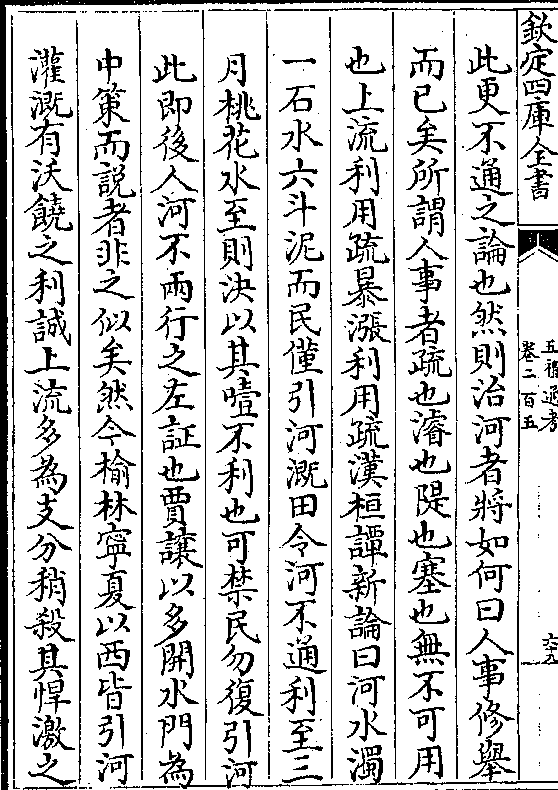 欽定四庫全書
五禮通考
卷二百五
六十九
此更不通之論也然則治河者將如何曰人事修舉
而已矣所謂人事者疏也濬也隄也塞也無不可用
也上流利用疏暴漲利用疏漢桓譚新論曰河水濁
一石水六斗泥而民僅引河溉田令河不通利至三
月桃花水至則決以其噎不利也可禁民勿復引河
此即後人河不兩行之左証也賈讓以多開水門為
中策而說者非之似矣然今榆林寧夏以西皆引河
灌溉有沃饒之利誠上流多為支分稍殺其悍激之